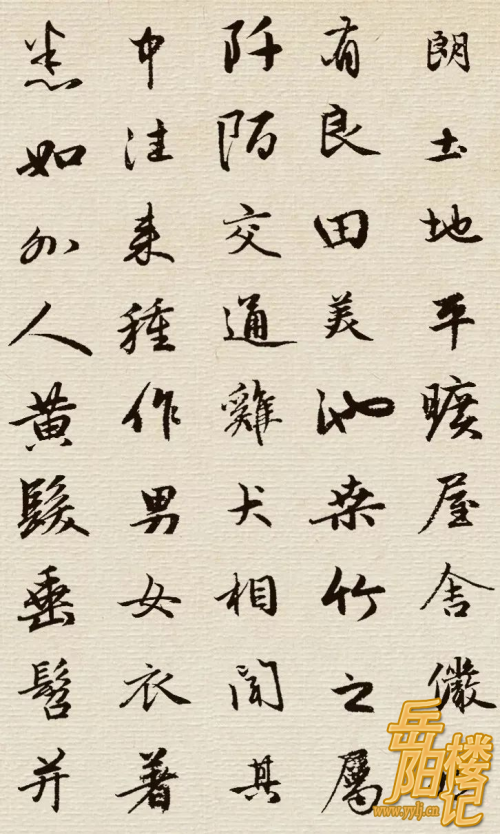 朗土地平曠屋舍儼
有良田美池桑竹之屬
阡陌交通雞犬相聞其
中往来種作男女衣著
悉如外人黃髮垂髫并
岳阳楼记
www.yylj.cn